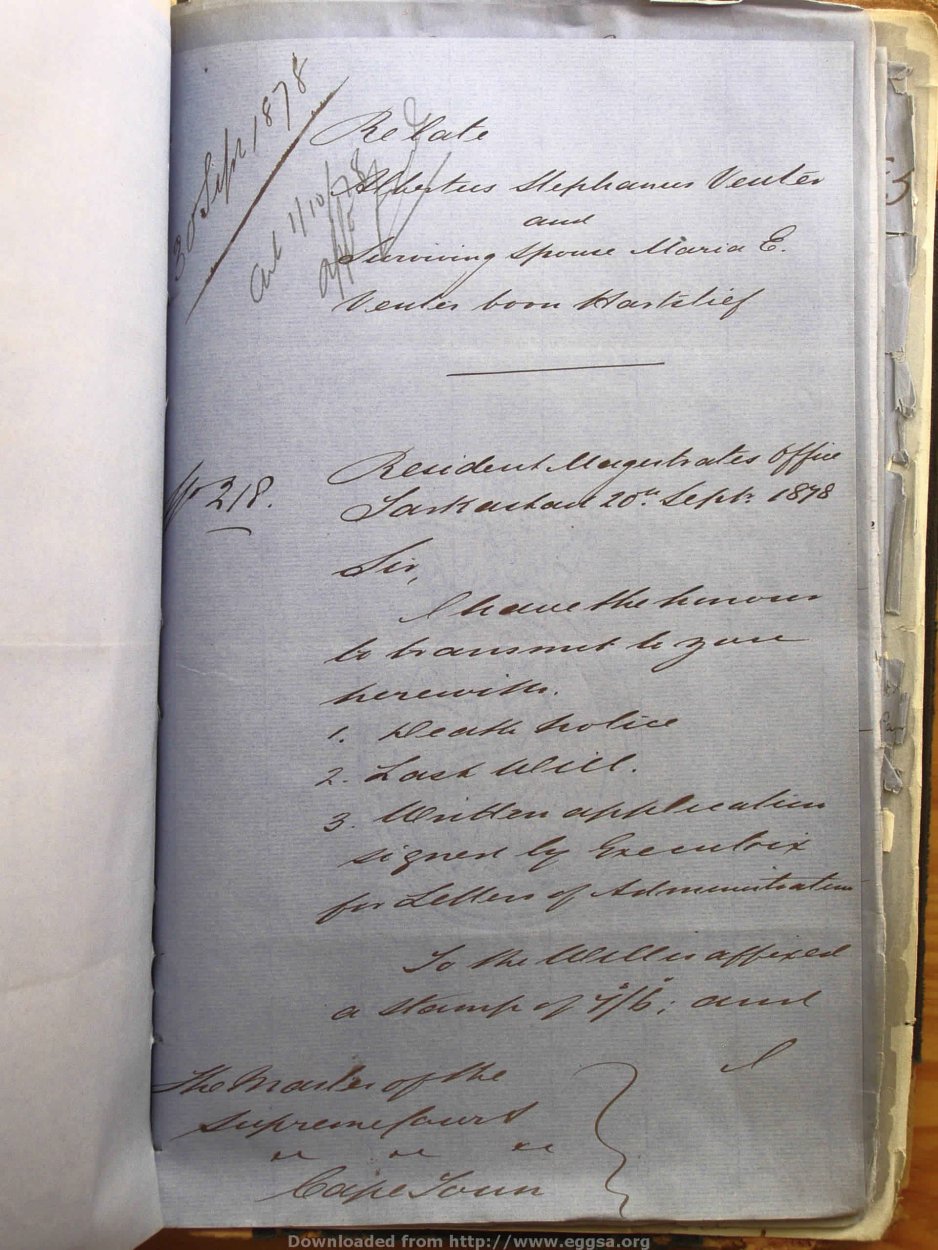 30 Sept 1878
Re Late
Albertus Stephanus Venter
and
Surviving Spouse Maria E.
Venter born Hartslief
1/10/78
No 218.
Resident Magistrates Office
Tarkastad 20th Sept: 1878
Sir,
I have the honour
to transmit to you
herewith.
1. Death Notice
2. Last Will.
3. Written application
signed by Executrix
for Letters of Administration
To the Will is affixed
a Stamp of 7/6; and
I
The Master of the
Supreme Court
Cape Town
Downloaded from http://www.eggsa.org